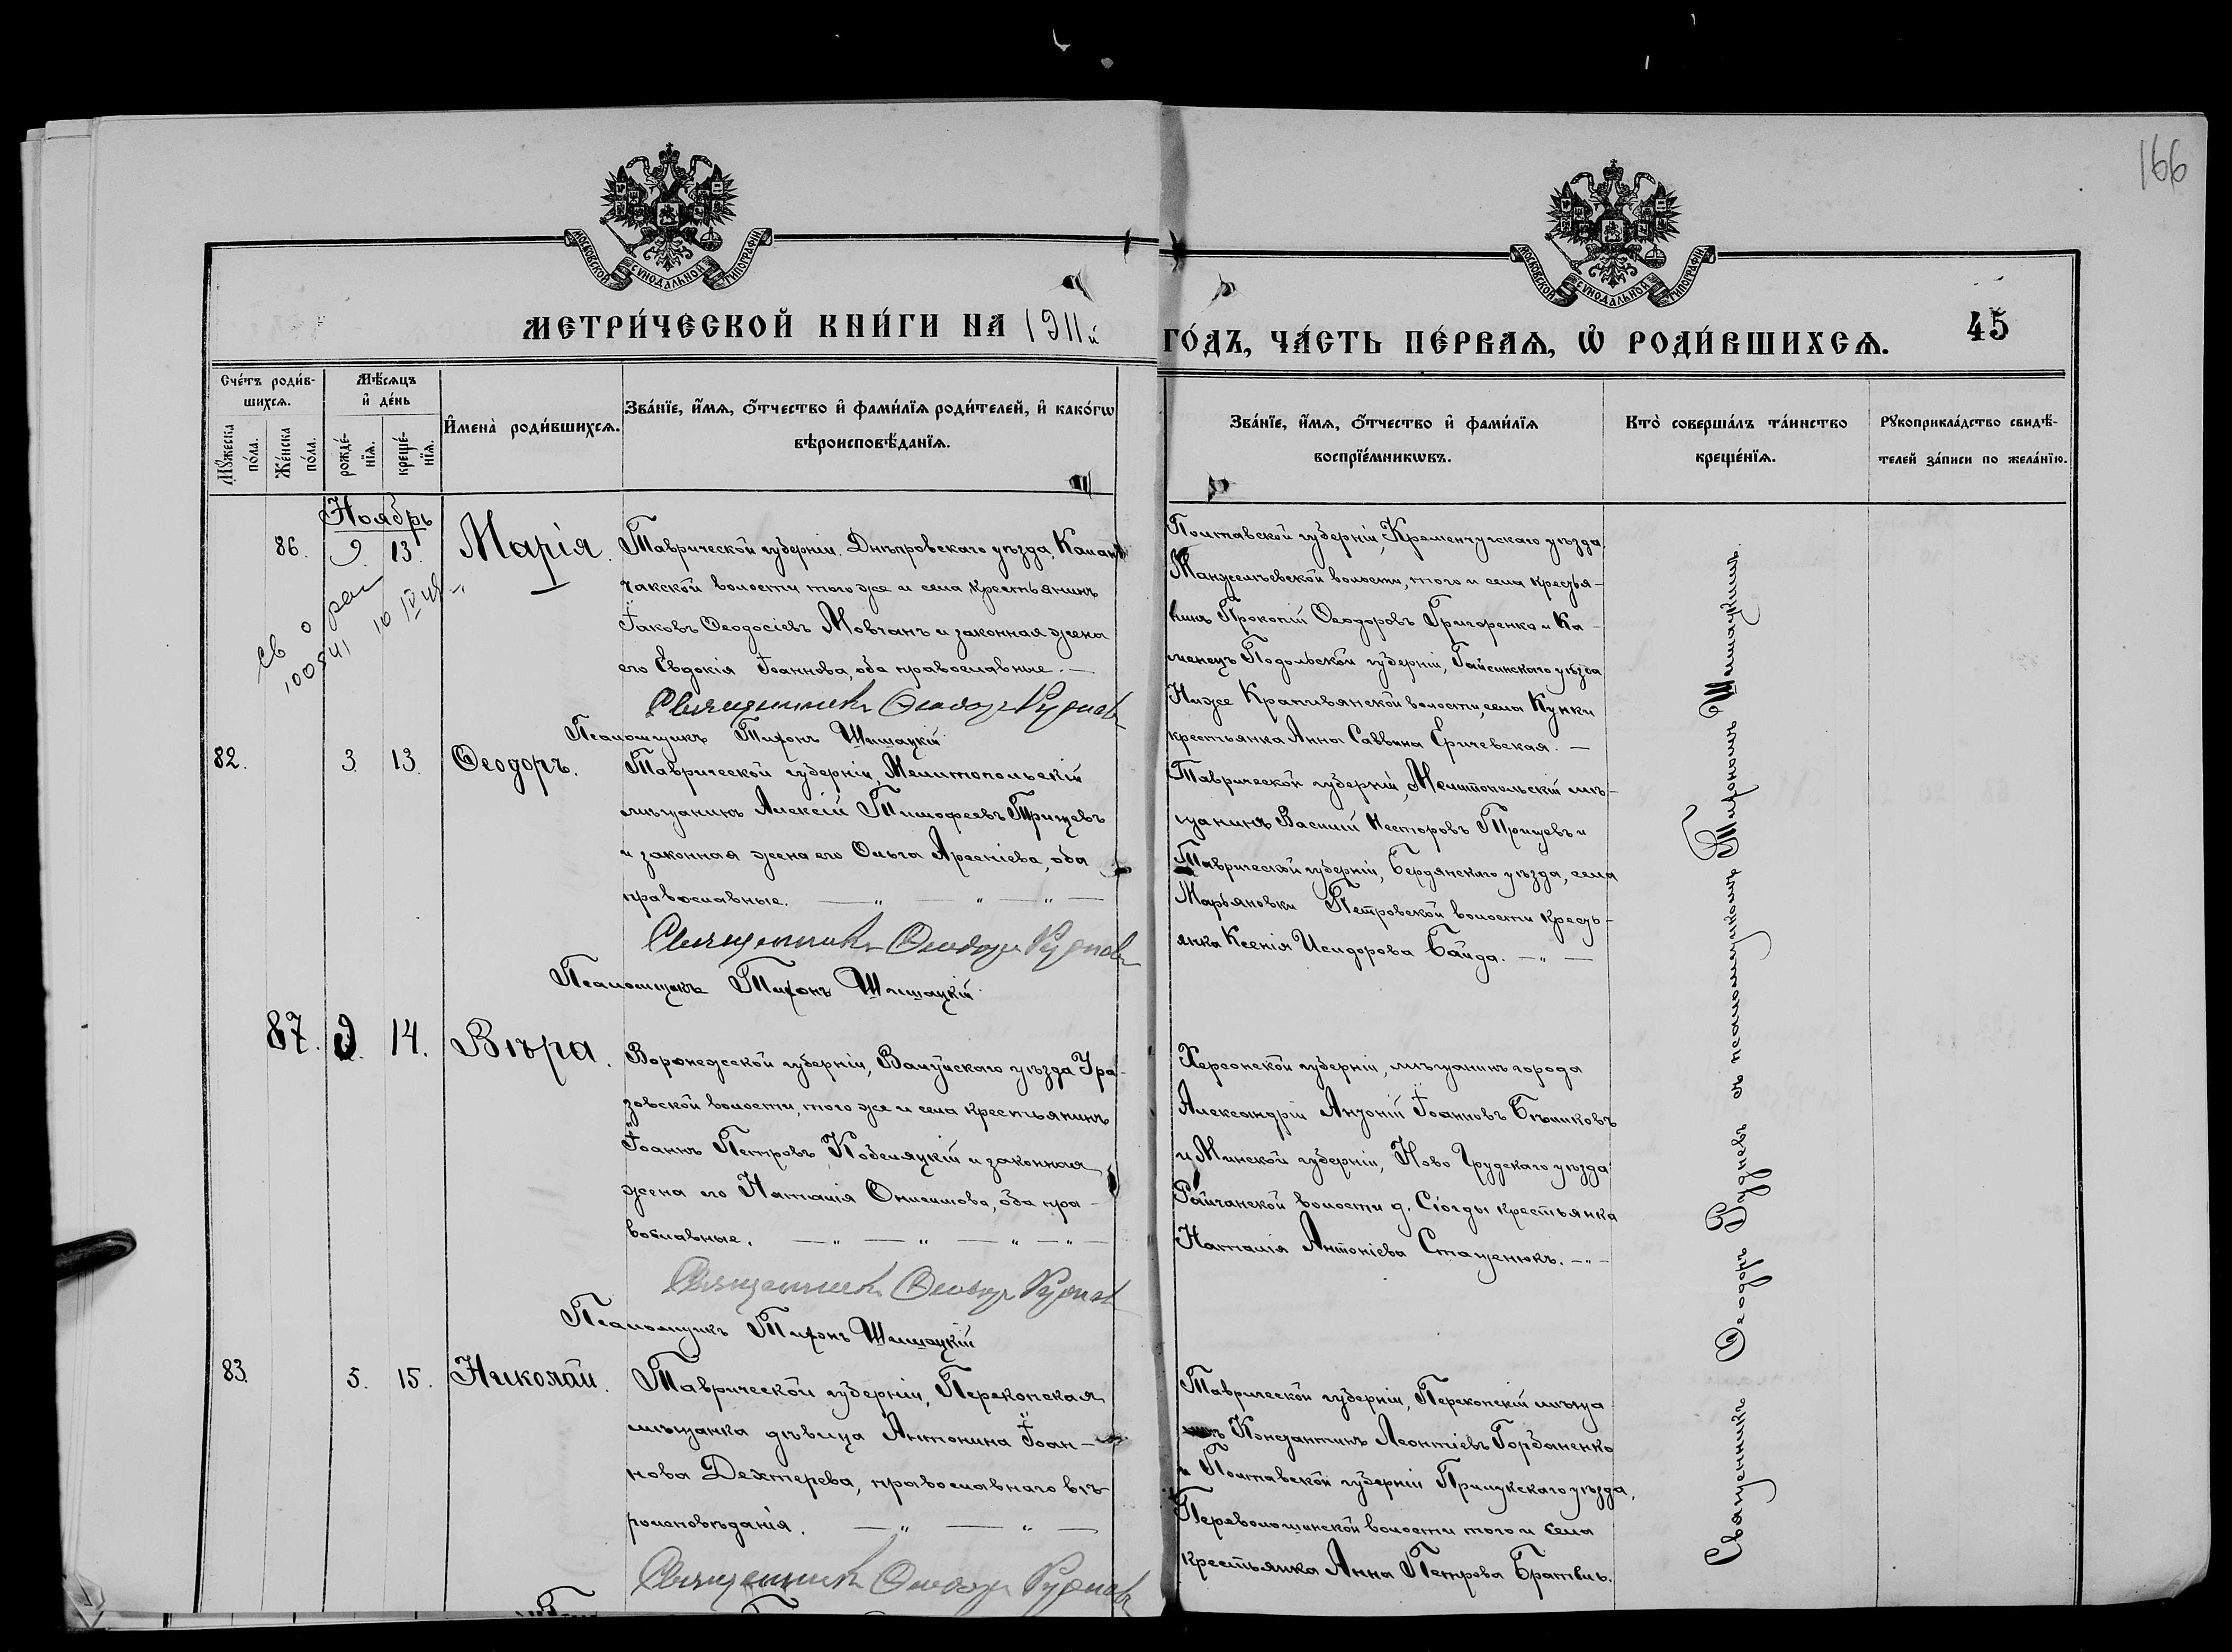 166
МОСКОВСКОЙ СѴНОДАЛЬНОЙ ТИПОГРАФІИ
МОСКОВСКОЙ СѴНОДАЛЬНОЙ ТИПОГРАФІИ
МЕТРИ́ЧЕСКОЙ КНИ́ГИ НА 1911й
ГО́ДЪ, ЧА́СТЬ ПЕ́РВАѦ, Ѡ҆ РОДИ́ВШИХСѦ.
45
Сче́тъ роди́в-
шихсѧ.
Мѣ́сѧцъ
и҆ де́нь
И҆мена̀ роди́вшихсѧ.
Зва́нїе, и҆́мѧ, ѻ҆́тчество и҆ фами́лїѧ роди́телей, и҆ како́гѡ
вѣроисповѣ́данїѧ.
Мꙋ́жеска
по́ла.
Же́нска
по́ла.
рожде́-
нїѧ.
креще́-
нїѧ.
Зва́нїе, и҆́мѧ, ѻ҆́тчество и҆ фами́лїѧ
воспрїе́мникѡвъ.
Кто̀ соверша́лъ та́инство
креще́нїѧ.
Рꙋкоприкла́дство свидѣ́-
телей за́писи по жела́нїю.
Ноябрь
86. 9. 13. Марія.
Таврической губерніи, Днѣпровскаго уѣзда, Калан-
чакской волости того же и села крестьянинъ
Іаковъ Ѳеодосіевъ Мовчанъ и законная жена
его Евдокія Іоаннова, оба православные. —
Священникъ Ѳеодоръ Рудневъ
Псаломщикъ Тихонъ Шишацкій
Полтавской губерніи, Кременчугскаго уѣзда,
Манжелѣевской волости, того и села кресть-
нинъ Прокопій Ѳеодоровъ Григоренко и Ка-
менецъ Подольской губерніи, Гайсинскаго уѣзда
Ниже Крапивянской волости, села Кунки
крестьянка Анна Саввина Еричевская. —
82. 3. 13. Ѳеодоръ.
Таврической губерніи, Мелитопольскій
мѣщанинъ Алексій Тимофеевъ Трищевъ
и законная жена его Ольга Арсеніева, оба
православные. — " — " — " —
Священникъ Ѳеодоръ Рудневъ
Псаломщикъ Тихонъ Шишацкій
Таврической губерніи, Мелитопольскій мѣ-
щанинъ Василій Несторовъ Трищевъ и
Таврической губерніи, Бердянскаго уѣзда, села
Марьяновки Петровской волости кресть-
янка Ксенія Исидорова Байда. — " —
87. 9. 14. Вѣра.
Воронежской губерніи, Валуйскаго уѣзда Ура-
зовской волости, того же и села крестьянинъ
Іоаннъ Петровъ Кобеляцкій и законная
жена его Наталія Онисимова, оба пра-
вославные. — " — " — " — " —
Священникъ Ѳеодоръ Рудневъ
Псаломщикъ Тихонъ Шишацкій
Херсонской губерніи, мѣщанинъ города
Александріи Іоанновъ Бѣликовъ
и Минской губерніи, Ново Грудскаго уѣзда
Райчанской волости д. крестьянка
Наталія Антоніева Стащенюкъ. — " —
83. 5. 15. Николай.
Таврической губерніи, Перекопская
мѣщанка дѣвица Антонина Іоан-
нова Дехтерева, православнаго вѣ-
роисповѣданія. — " — " —
Священникъ Ѳеодоръ Рудневъ
Таврической губерніи, Перекопскій мѣща-
нинъ Константинъ Леонтіевъ Горбаненко
и Полтавской губерніи Прилукскаго уѣзда,
Переволочинской волости того и села
крестьянка Анна Петрова
Священникъ Ѳеодоръ Рудневъ съ псаломщикомъ Тихономъ Шишацкимъ.